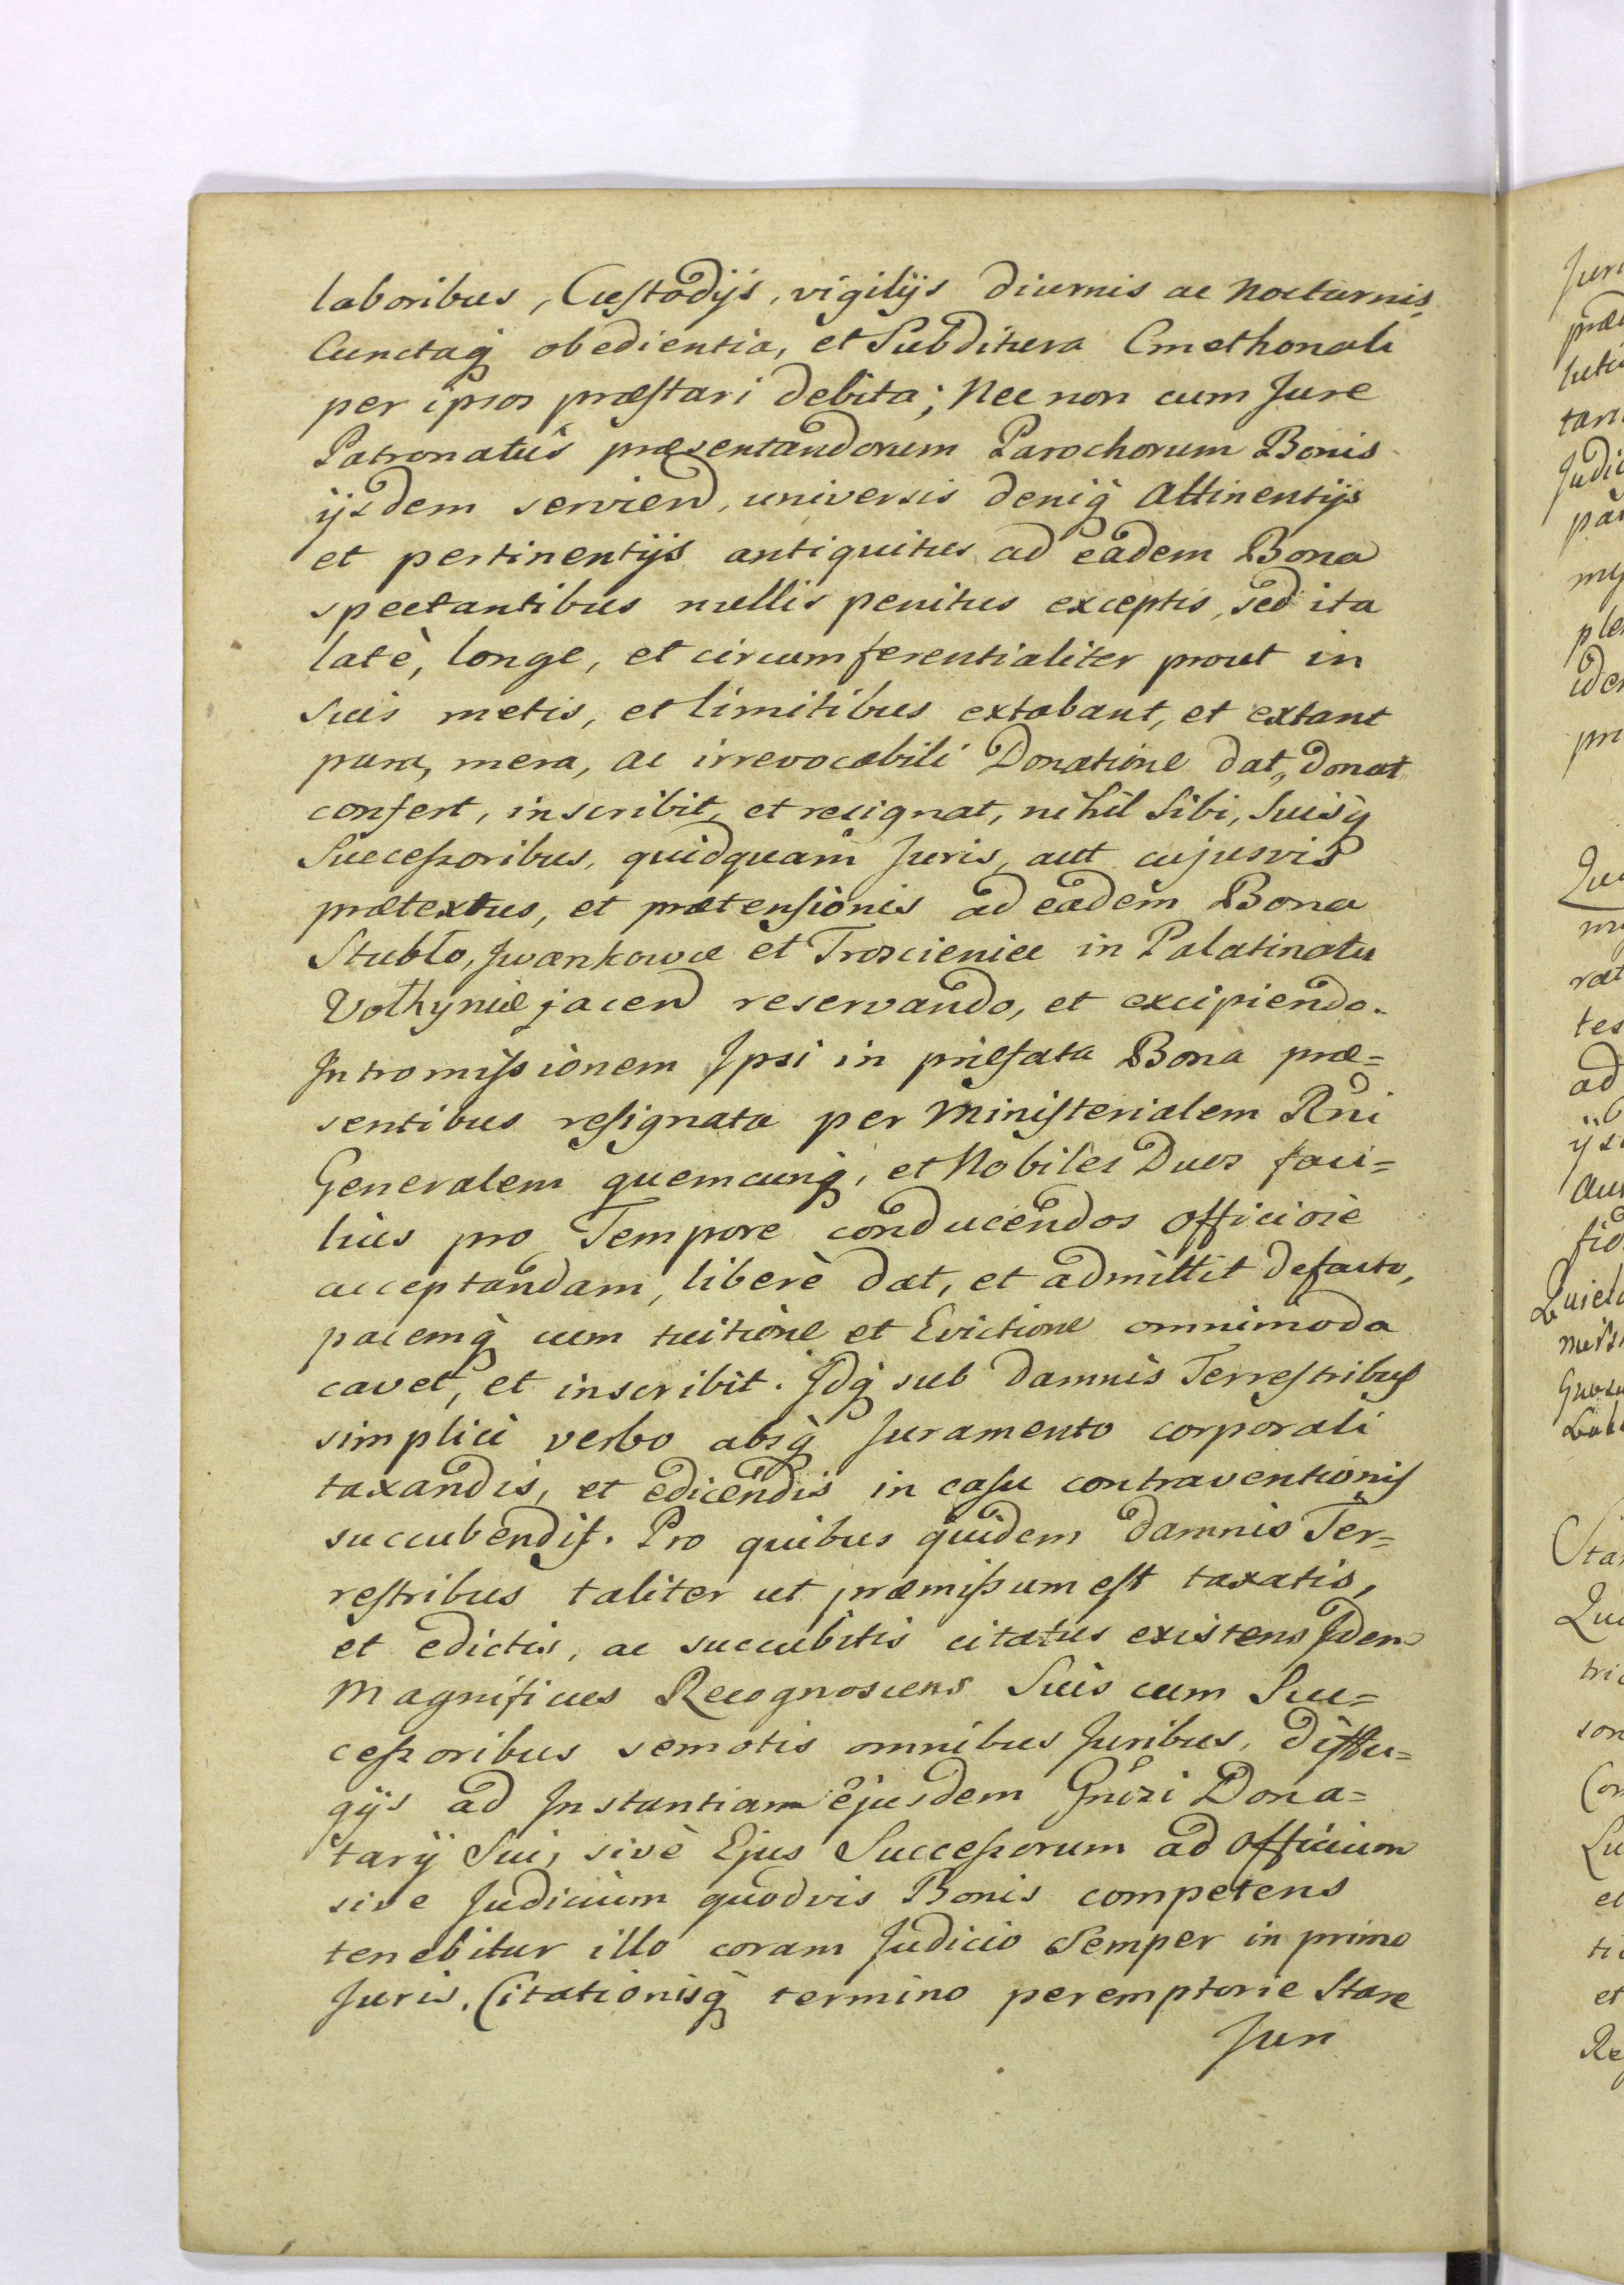 laboribus, Custodijs, vigilijs diurnis ac Nocturnis,
Cunctaq́ obedientia, et Subditura Cmethonali
per ipsos præstari debita; Nec non cum Jure
Patronatûs præsentandorum Parochorum Bonis
ijsdem serviend, universis deniq́ Attinentijs
et pertinentijs antiquitus ad eadem Bona
spectantibus nullis penitus exceptis, sed ita
latè, longe, et circumferentialiter prout in
suis metis, et limitibus extabant, et extant
pura, mera, ac irrevocabili Donatione dat, donat
confert, inscribit, et resignat, nihil Sibi, Suisq́
Successoribus, quidquam Juris, aut cujusvis
prætextus, et prætensionis ad eadem Bona
Stubło, Jwankowce et Troscieniec in Palatinatu
Volhyniæ jacend reservando, et excipiendo.
Intromissionem Ipsi in præfata Bona præ=
sentibus resignata per Ministerialem Rni
Generalem quemcunq́, et Nobiles Duos faci=
lius pro Tempore conducendos officiosè
acceptandam, liberè dat, et admittit defacto,
pacemq́ cum tuitione et Evictione omnimoda
cavet, et inscribit. Idq́ sub Damnis Terrestribus
simplici verbo absq́ Juramento corporali
taxandis, et edicendis in casu contraventionis
succubendis. Pro quibus quidem damnis Ter=
restribus taliter ut præmissum est taxatis,
et edictis, ac succubitis citatus existens Idem
Magnificus Recognoscens Suis cum Suc=
cessoribus semotis omnibus Juribus, diffu=
gijs ad Instantiam ejusdem Gnosi Dona=
tarij Sui, sivè Ejus Successorum ad Officium
sive Judicium quodvis Bonis competens
tenebitur illo coram Judicio Semper in primo
Juris, Citationisq́ termino peremptorie Stare
Juri